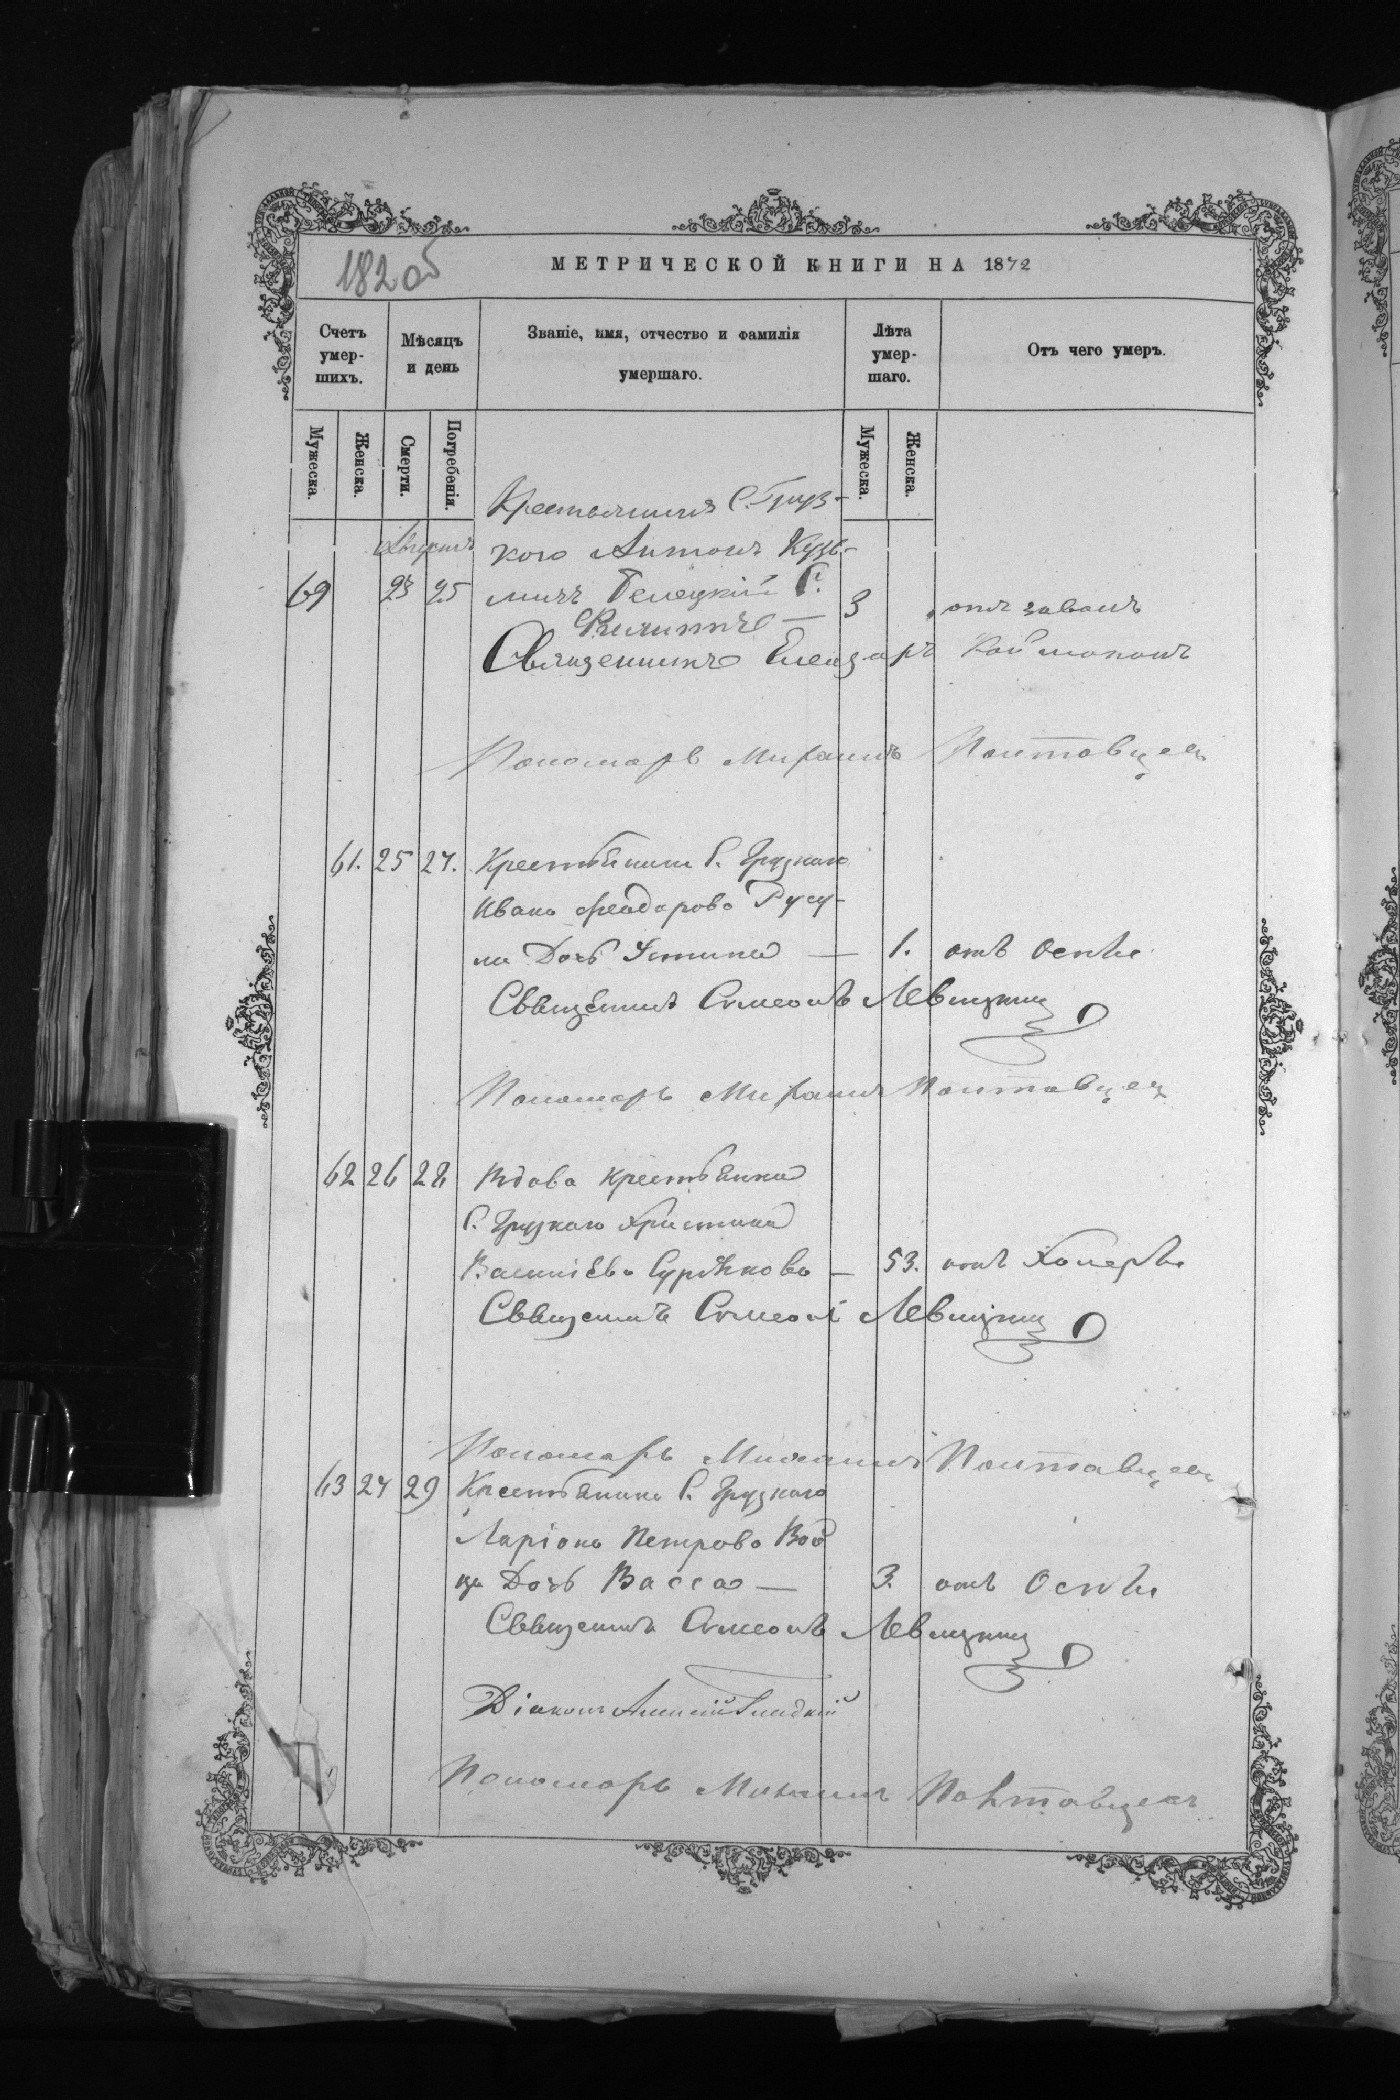 182 об
МЕТРИЧЕСКОЙ КНИГИ НА 1872
Счетъ умер-шихъ.
Мѣсяцъ и день
Званіе, имя, отчество и фамилія умершаго.
Лѣта умер-шаго.
Отъ чего умеръ.
Мужеска.
Женска.
Смерти.
Погребенія.
Мужеска.
Женска.
Крестьянинъ С. Груз-
Августъ
кого Антонъ Кузь-
69 23 25 мичъ С.
3 отъ
Священникъ Елеазаръ
Пономарь Михаилъ Полтавцевъ
61. 25 27. Крестьянина С. Грузкаго
Ивана Феодорова Русу-
ла Дочь Устина — 1. отъ Оспы
Священникъ Симеонъ Левицкий
Пономарь Михаилъ Полтавцевъ
62 26 28 Вдова крестьянка
С. Грузкаго Христина
Василіева — 53. отъ Холеры
Священникъ Симеонъ Левицкий
Пономарь Михаилъ Полтавцевъ
63 27 29 Крестьянина С. Грузкаго
Ларіона Петрова
Дочь Васса — 3. отъ Оспы
Священникъ Симеонъ Левицкий
Діаконъ
Пономарь Михаилъ Полтавцевъ